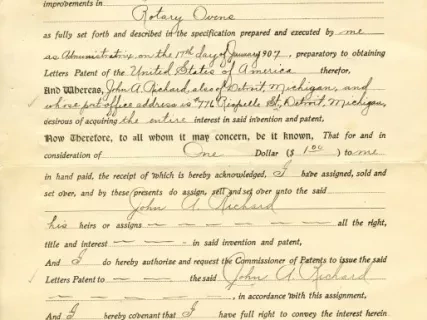 improvements in
Rotary Ovens
as fully set forth and described in the specification prepared and executed by me
as Administratrix on the 17th day of January 1907, preparatory to obtaining
Letters Patent of the United States of America therefor,
And Whereas, John A. Richard, also of Detroit, Michigan, and
whose post office address is 776 St, Detroit, Michigan,
desirous of acquiring the entire interest in said invention and patent,
Now Therefore, to all whom it may concern, be it known, That for and in
consideration of One Dollar ($ 1.00 ) to me
in hand paid, the receipt of which is hereby acknowledged, I have assigned, sold and
set over, and by these presents do assign, sell and set over unto the said
John A. Richard
his heirs or assigns — — — — — — all the right,
title and interest — — — in said invention and patent,
And I do hereby authorize and request the Commissioner of Patents to issue the said
Letters Patent to — — — the said John A. Richard
— — — — — — —, in accordance with this assignment,
And I hereby covenant that I have full right to convey the interest herein